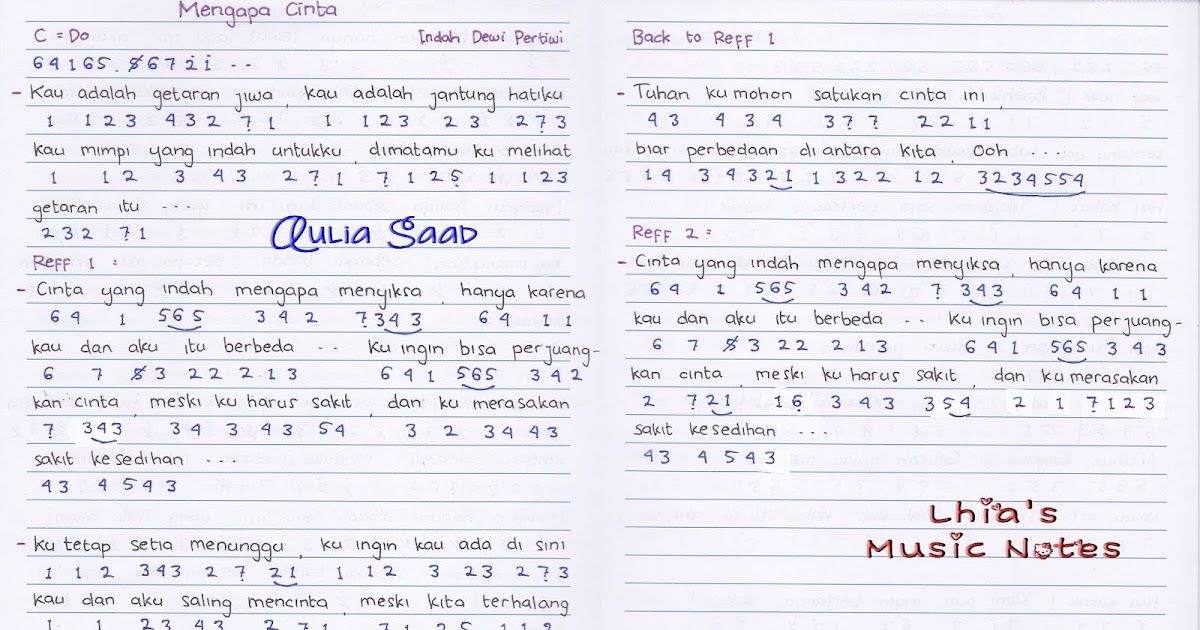 Mengapa Cinta
C = Do Indah Dewi Pertiwi
6 4 1 6 5 . 5̸ 6 7 2 i̇ i̇ - -
- Kau adalah getaran jiwa , kau adalah jantung hatiku
1 1 2 3 4 3 2 7̣ 1 1 1 2 3 2 3 2 7̣ 3
kau mimpi yang indah untukku , dimatamu ku melihat
1 1 2 3 4 3 2 7̣ 1 7̣ 1 2 5̣ 1 1 2 3
getaran itu ...
2 3 2 7̣ 1
Qulia Saad
Reff 1 =
- Cinta yang indah mengapa menyiksa hanya karena
6 4 1 5 6 5 3 4 2 7̣ 3 4 3 6 4 1 1
kau dan aku itu berbeda .. Ku ingin bisa perjuang-
6 7 5̸ 3 2 2 2 . 1 3 6 4 1 5 6 5 3 4 2
kan cinta meski ku harus sakit , dan ku merasakan
7̣ 3 4 3 3 4 3 4 3 5 4 3 2 3 4 4 3
sakit kesedihan ...
4 3 4 5 4 3
- Ku tetap setia menunggu , ku ingin kau ada di sini
1 1 2 3 4 3 2 7̣ 2 1 1 1 2 3 2 3 2 7̣ 3
kau dan aku saling mencinta , meski kita terhalang
Back to Reff 1
- Tuhan ku mohon satukan cinta ini
4 3 4 3 4 3 7̣ 7̣ 2 2 1 1
biar perbedaan di antara kita Ooh ...
1 4 3 4 3 2 1 1 3 2 2 1 2 3 2 3 4 5 5 4
Reff 2 =
- Cinta yang indah mengapa menyiksa , hanya karena
6 4 1 5 6 5 3 4 2 7̣ 3 4 3 6 4 1 1
kau dan aku itu berbeda .. Ku ingin bisa perjuang-
6 7 5̸ 3 2 2 2 1 3 6 4 1 5 6 5 3 4 3
kan cinta , meski ku harus sakit , dan ku merasakan
2 7̣ 2 1 1 6̣ 3 4 3 3 5 4 2 1 7̣ 1 2 3
sakit kesedihan ...
4 3 4 5 4 3
Lhia's
Music Notes